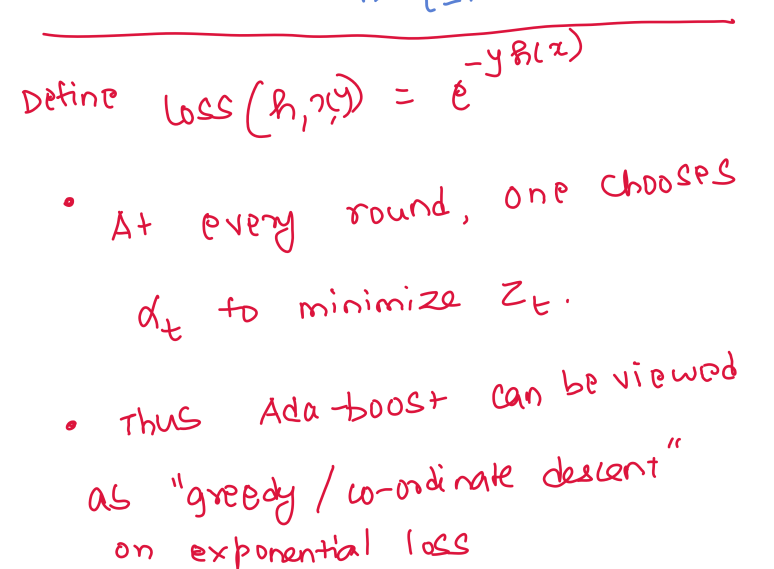 Define loss(h, x, y) = e^{-y h(x)}
• At every round, one chooses
α_t to minimize Z_t.
• Thus Ada-boost can be viewed
as "greedy / co-ordinate descent"
on exponential loss